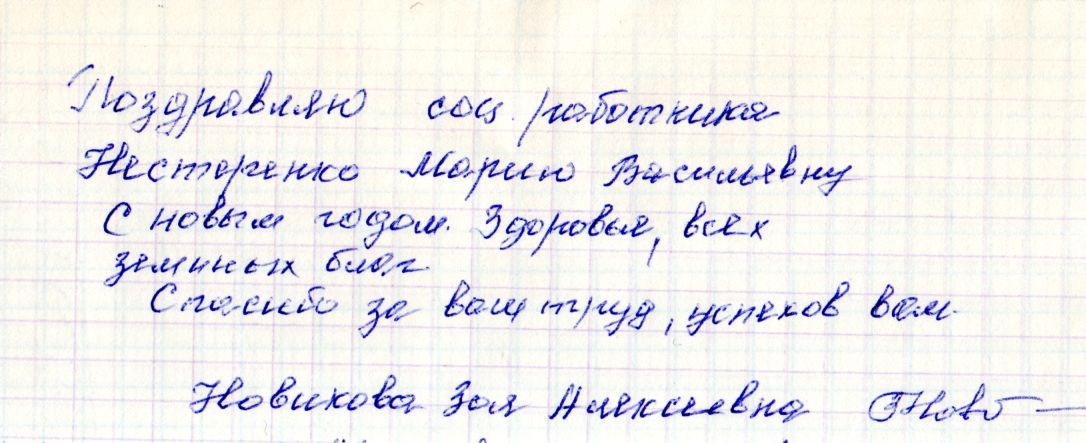 Поздравляю соц. работника
Нестеренко Марию Васильевну
С новым годом. Здоровья, всех
земных благ
Спасибо за ваш труд, успехов вам.
Новикова Зоя Алексеевна